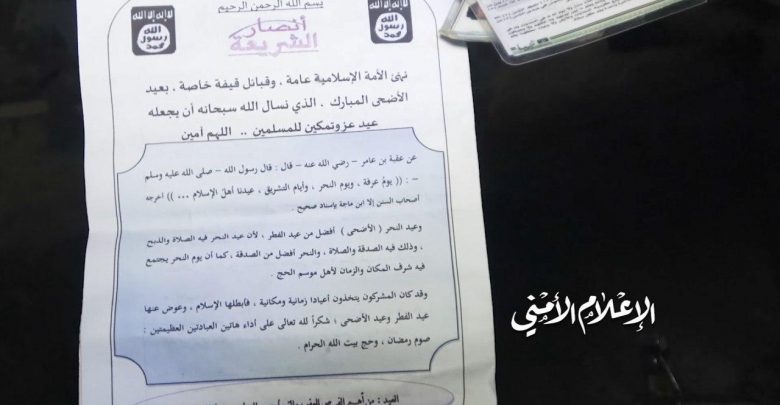 بسم الله الرحمن الرحيم
لا إله إلا الله
الله رسول محمد
لا إله إلا الله
الله رسول محمد
أنصار
الشريعة
نهنئ الأمة الإسلامية عامة ، وقبائل قيفة خاصة ، بعيد
الأضحى المبارك ، الذي نسأل الله سبحانه أن يجعله
عيد عز وتمكين للمسلمين .. اللهم آمين
عن عقبة بن عامر – رضي الله عنه – قال : قال رسول الله – صلى الله عليه وسلم
– : (( يوم عرفة ، ويوم النحر ، وأيام التشريق ، عيدنا أهل الإسلام ... )) أخرجه
أصحاب السنن إلا ابن ماجة بإسناد صحيح .
وعيد النحر ( الأضحى ) أفضل من عيد الفطر ، لأن عيد النحر فيه الصلاة والذبح
، وذلك فيه الصدقة والصلاة ، والنحر أفضل من الصدقة ، كما أن يوم النحر يجتمع
فيه شرف المكان والزمان لأهل موسم الحج .
وقد كان المشركون يتخذون أعيادا زمانية ومكانية ، فأبطلها الإسلام ، وعوض عنها
عيد الفطر وعيد الأضحى ؛ شكراً لله تعالى على أداء هاتين العبادتين العظيمتين :
صوم رمضان ، وحج بيت الله الحرام .
العيد : من أهم
الإعلام الأمني